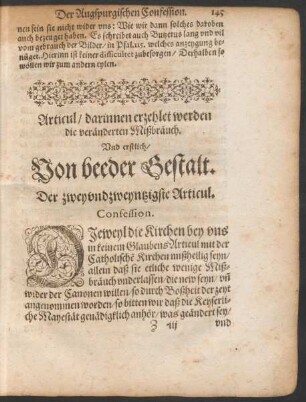 Der Augspurgischen Confession. 145
nen sein sie nicht wider uns: Wie wir dann solches daroben
auch bezeuget haben. Es schreibet auch Bucerus lang und vil
vom gebrauch der Bilder, in Psal. 115. welches anzeygung be-
Hierinn ist keiner difficultet zubesorgen / Derhalben so
wöllen wir zum andern eylen.
Articul / darinnen erzehlet werden
die veränderten Mißbräuch.
Und erstlich /
Von beeder Gestalt.
Der zweyundzweyntzigste Articul.
Confession.
DIeweyl die Kirchen bey uns
in keinem Glaubens Articul mit der
Catholischē Kirchen mißhellig seyn /
allein daß sie etliche wenige Miß-
bräuch underlassen / die new seyn / uñ
wider der Canonen willen / so durch Boßheit der zeyt
angenommen worden / so bitten wir daß die Keyserli-
che Mayestät genädiglich anhör / was geändert sey /
Z iij und